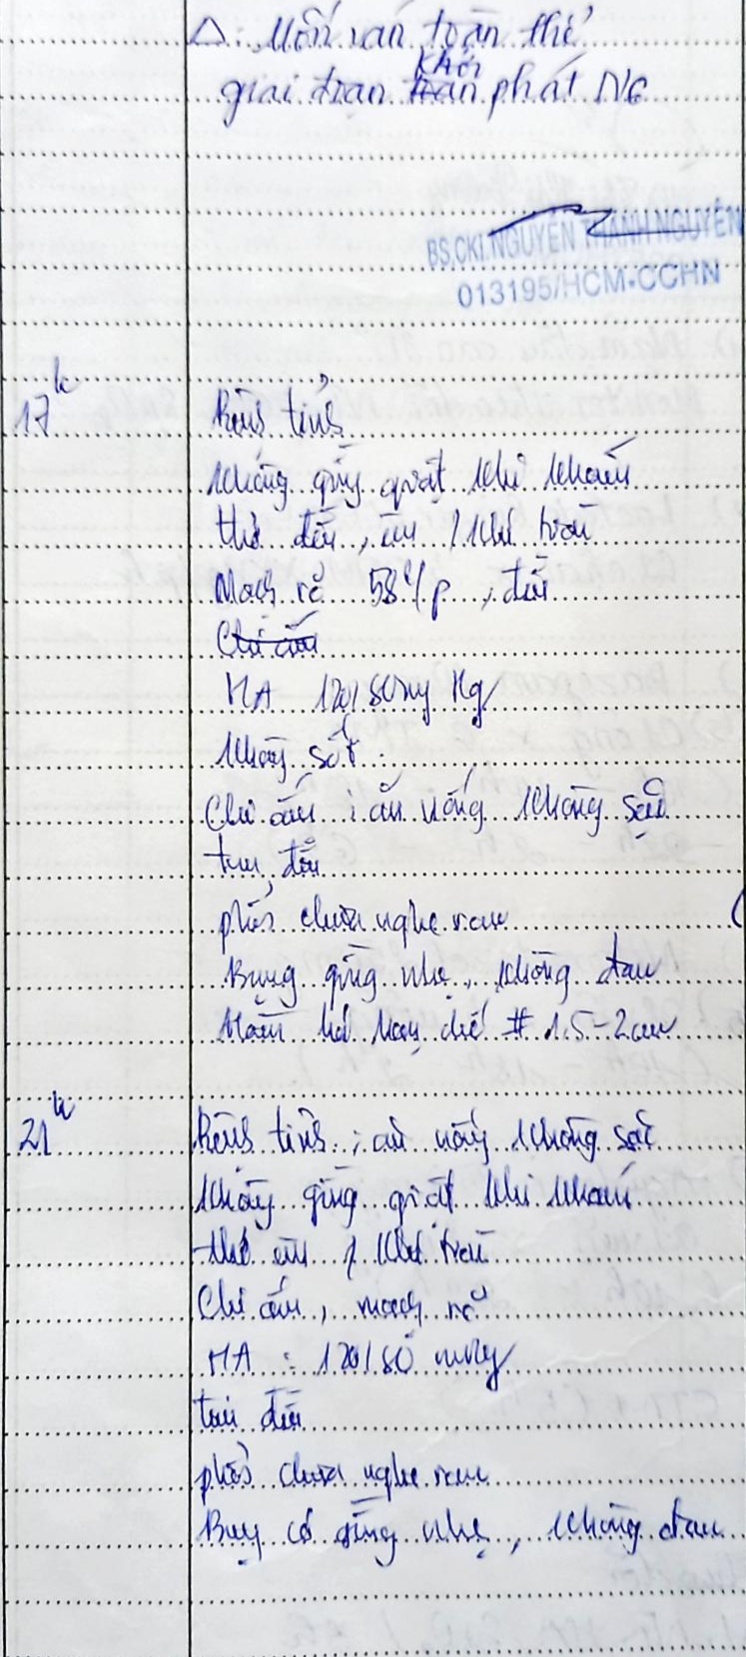 Δ: Uốn ván toàn thể
giai đoạn khởi phát N6
BS.CKI. NGUYỄN THANH NGUYÊN
013195/HCM-CCHN
17h
Bệnh tỉnh
Không gồng giật khi khám
thở đều, êm / khí trời
Mạch rõ 58 l/p, đều
Chi ấm
HA 120/80 mmHg
Không sốt
Chi ấm; ăn uống không sặc
tim đều
phổi chưa nghe ran
Bụng gồng nhẹ, không đau
Hàm há hạn chế # 1.5-2cm
21h
Bệnh tỉnh; ăn uống không sặc
Không gồng giật khi khám
thở êm / khí trời
Chi ấm, mạch rõ
HA: 120/80 mmHg
tim đều
phổi chưa nghe ran
Bụng có gồng nhẹ, không đau